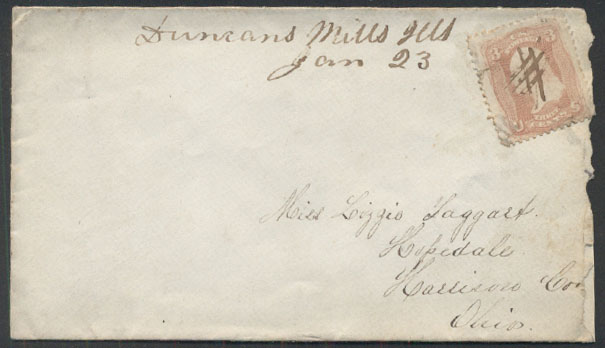 Duncans Mills Ills
Jan 23
3 3
Miss Lizzie Taggart.
Hopedale
Harrison Co
Ohio.